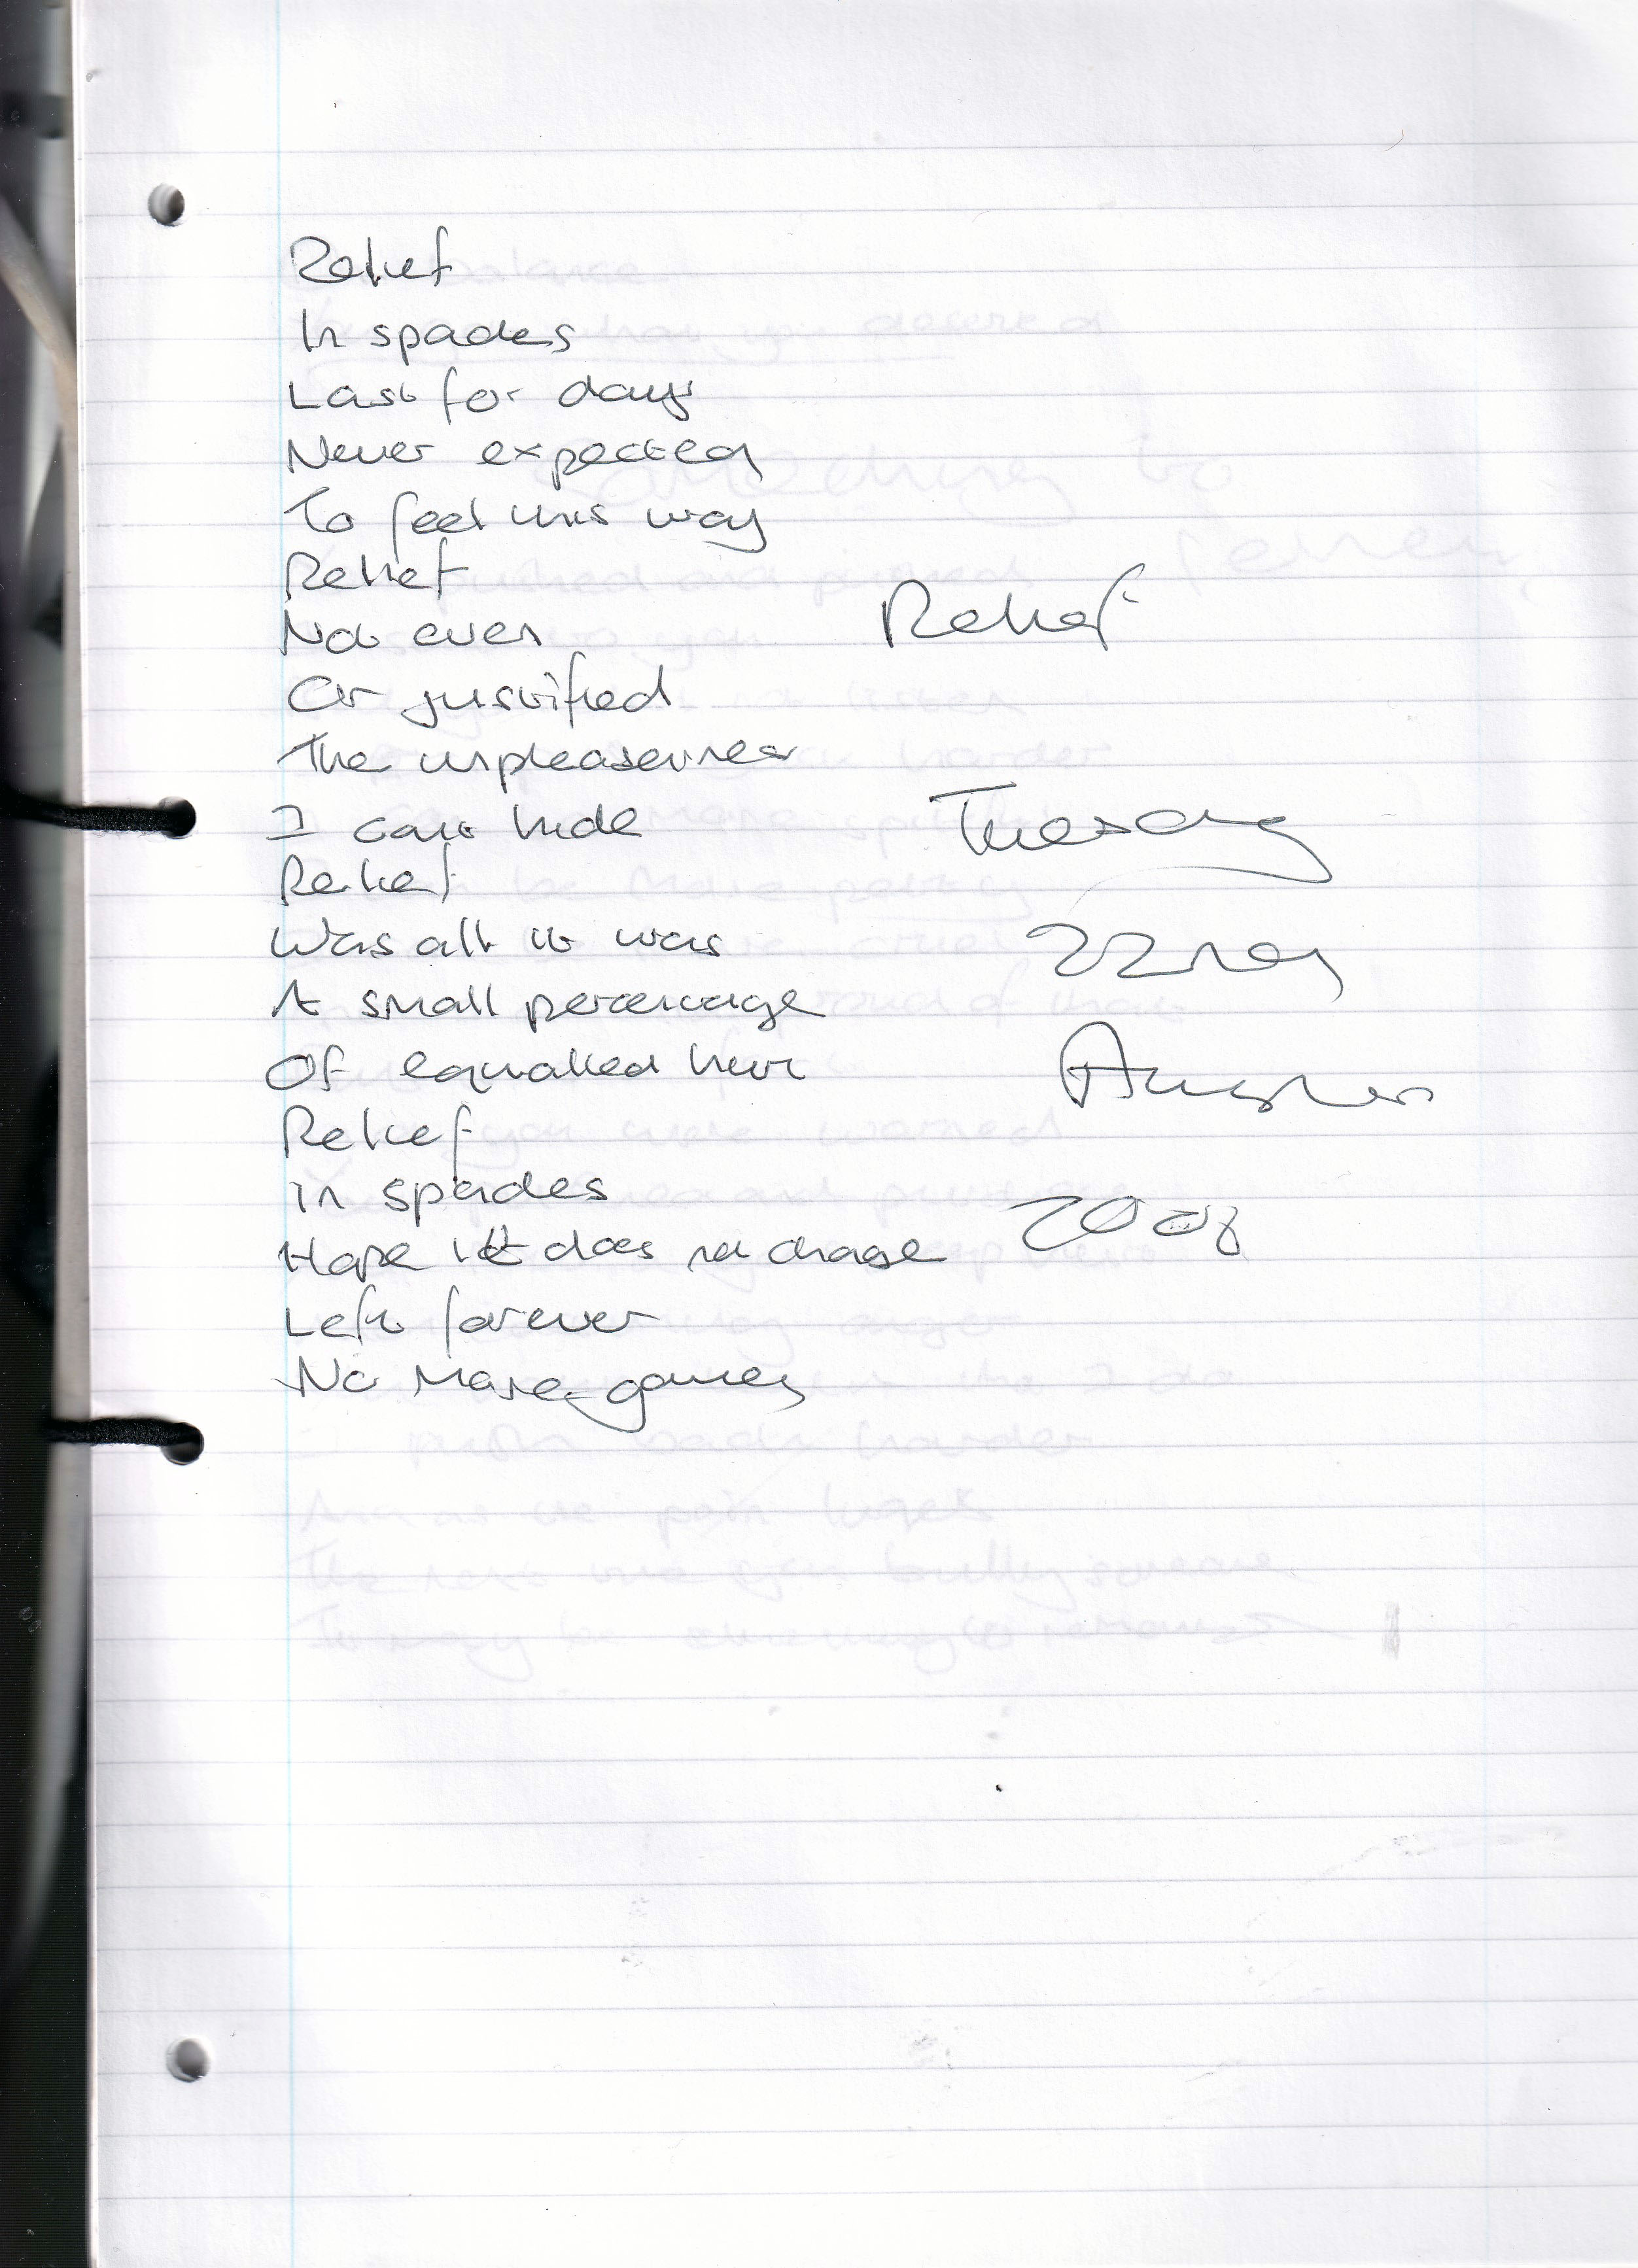 Relief
In spades
Last for days
Never expected
To feel this way
Relief
Not even
Or justified
The unpleasentness
I cant hide
Relief
Was all it was
A small percentage
Of equalled hurt
Relief
In spades
Hope it does not change
Left forever
No more games
Relief
Tuesday
22nd
August
2008